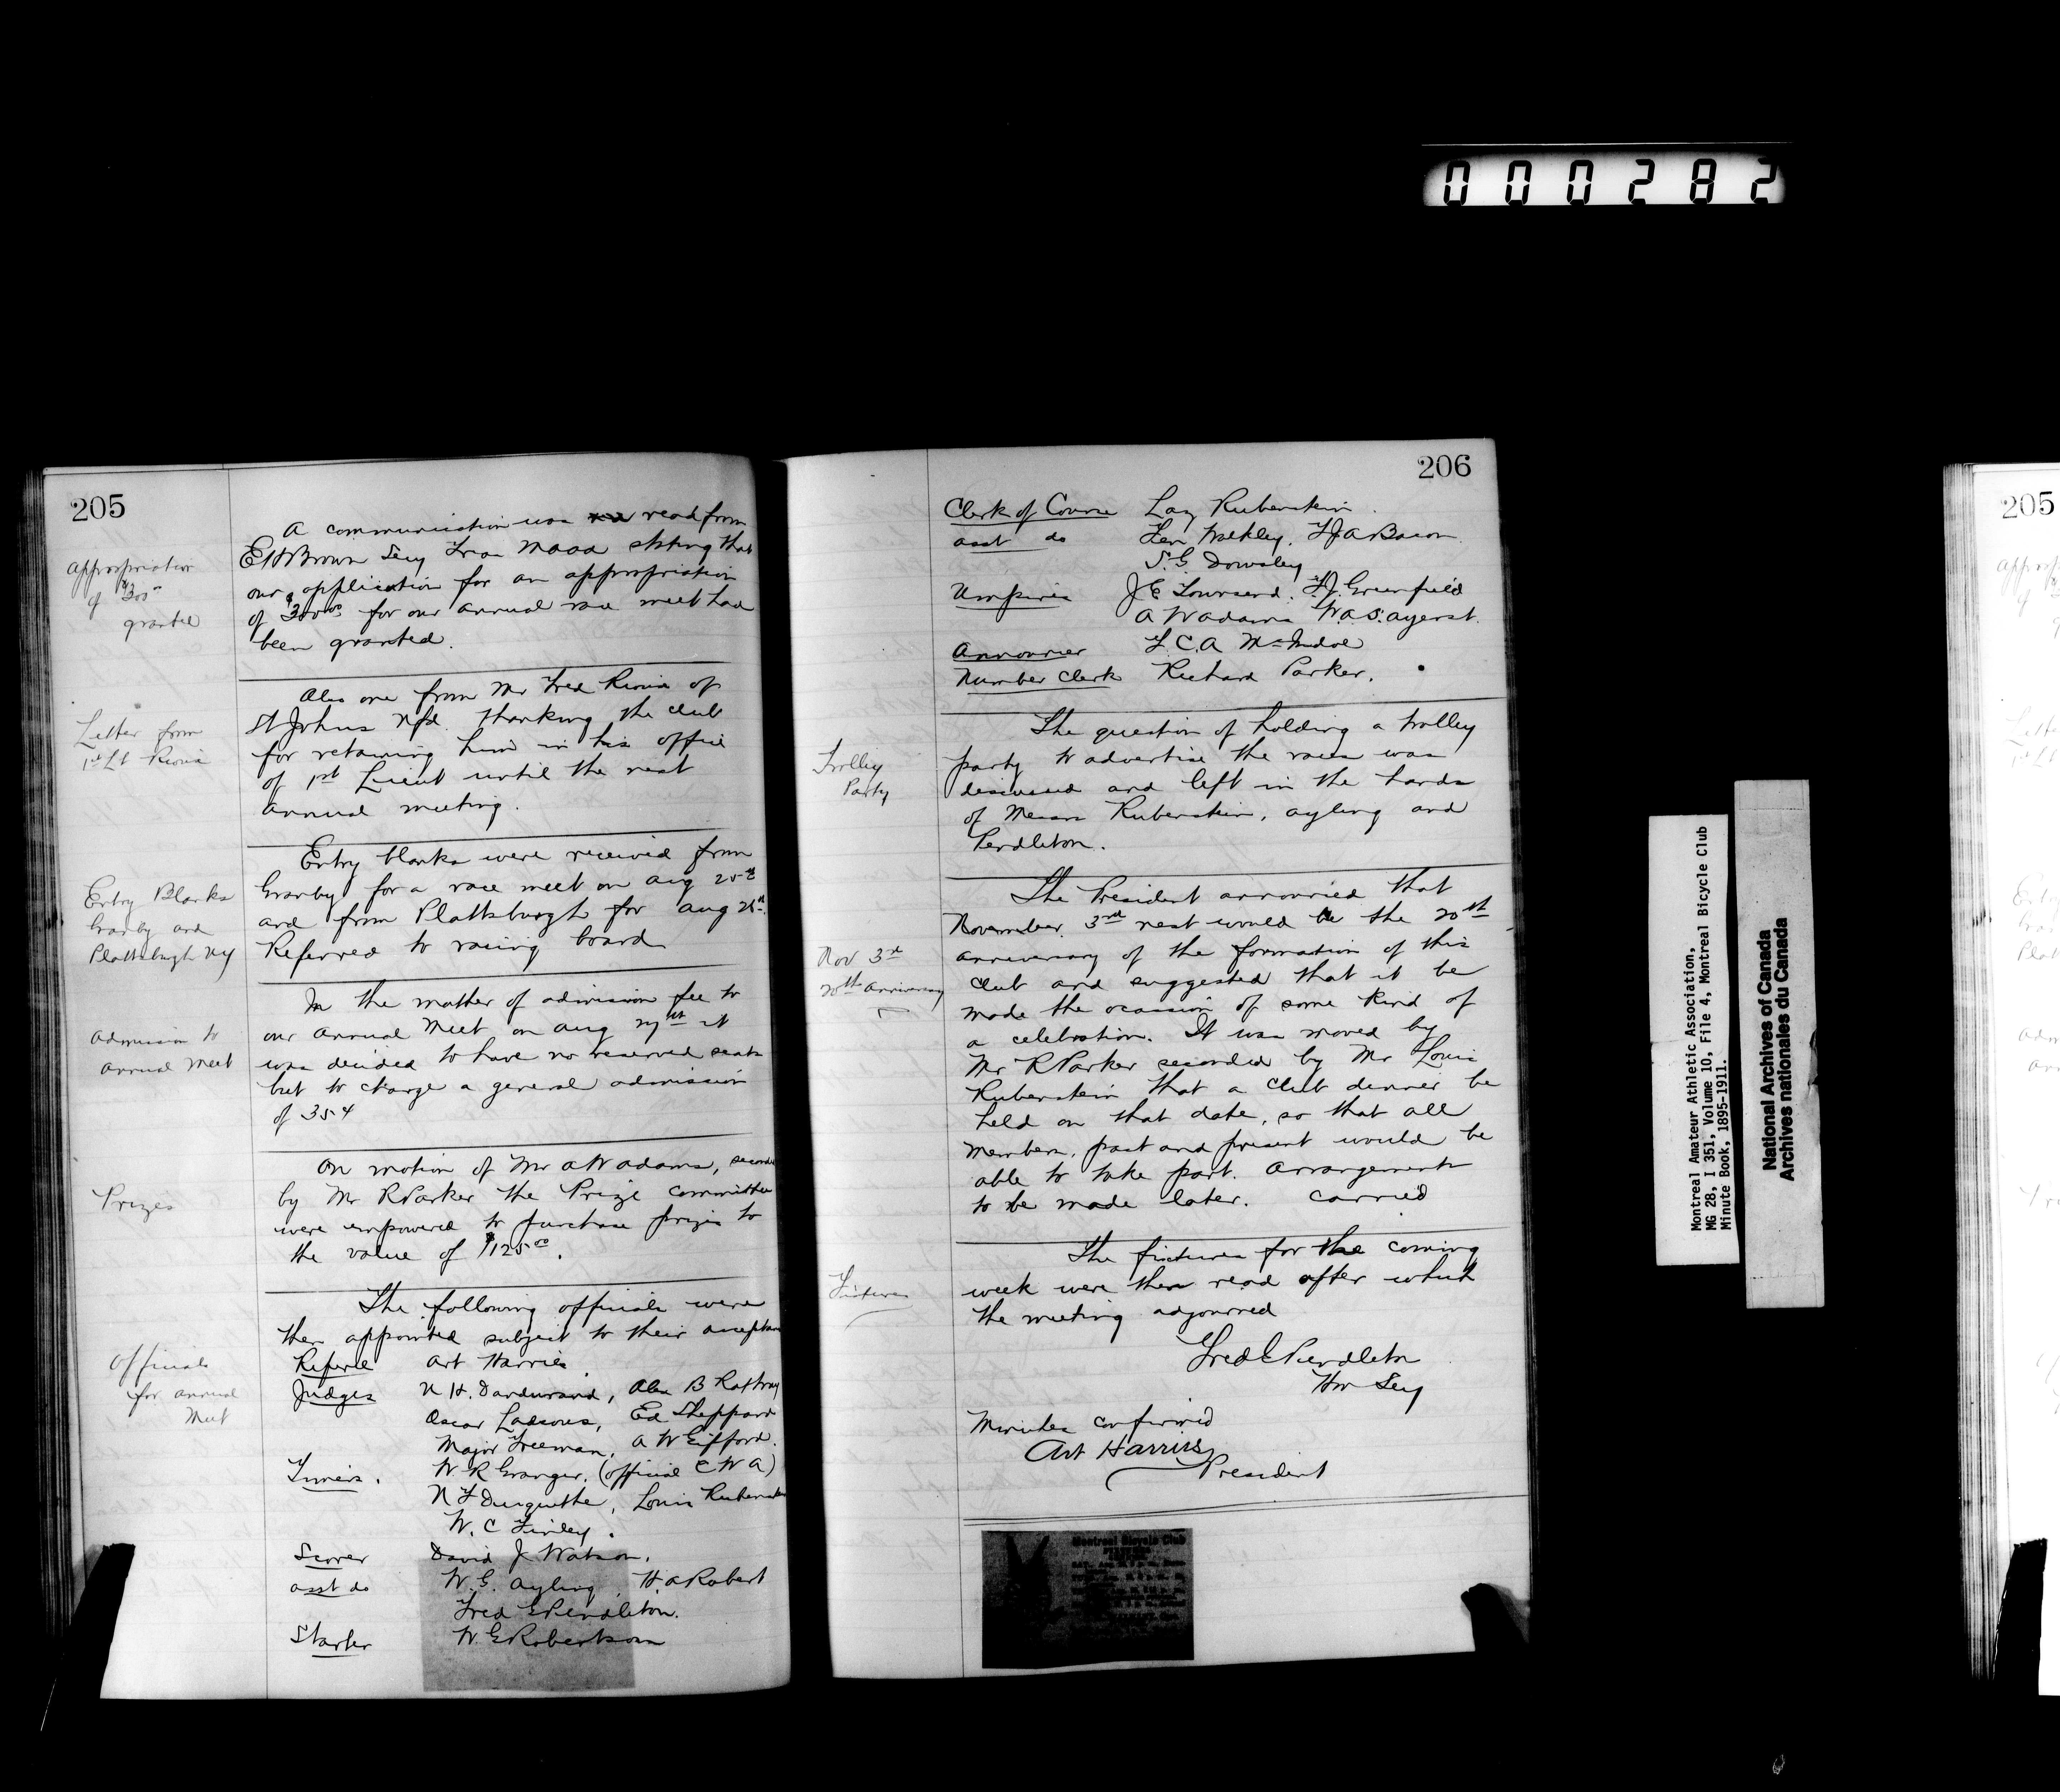 000282
205
A communication was read from
E H Brown Secy Treas MAAA stating that
our application for an appropriation
of $300.00 for our annual race meet had
been granted.
Appropriation
of $300
granted
Also one from Mr Fred
of
St Johns Nfd. thanking the club
for retaining him in his office
of 1st Lieut until the next
annual meeting.
Letter from
1st Lt
Entry blanks were received from
Granby for a race meet on Aug 25th
and from Plattsburgh for Aug
Referred to racing board
Entry Blanks
Granby and
Plattsburgh NY
In the matter of admission fee to
our annual meet on Aug
it
was decided to have no reserved seats
but to charge a general admission
of 35¢
Admission to
annual meet
On motion of Mr A W Adams, second
by Mr R Parker the Prize committee
were empowered to purchase prizes to
the value of $125.00.
Prizes
The following officials were
then appointed subject to their acceptance
Officials
for annual
Meet
Referee Art Harries
Judges N H. Dandurand, Alex B Rattray
Oscar Ladsous, Ed Sheppard
Major Freeman, A W Gifford.
Timers. W R Granger, (official C W A)
Louis Rubenstein
W. C Finley.
Scorer David J Watson.
asst do W. G. Ayling, H. A Robert
Fred E Pendleton.
Starter W. G Robertson
206
Clerk of Course Laz Rubenstein.
asst do Len Walkley. F J A Bacon
S. G. Dowsley
Umpires J E Townsend. F. J. Greenfield
A W Adams W. A. S. Ayerst.
Announcer F. C. A McIndoe
Number Clerk Richard Parker.
The question of holding a trolley
party to advertise the races was
discussed and left in the hands
of Messrs Rubenstein, Ayling and
Pendleton.
Trolley
Party
The President announced that
November 3rd next would be the 20th
anniversary of the formation of this
club and suggested that it be
made the ocassion of some kind of
a celebration. It was moved by
Mr R Parker seconded by Mr Louis
Rubenstein that a club dinner be
held on that date, so that all
members, past and present would be
able to take part. Arrangements
to be made later. Carried
Nov 3rd
20th Anniversary
The fixtures for the coming
week were then read after which
the meeting adjourned
Fixtures
Fred E Pendleton
Hon Secy
Minutes confirmed
Art Harries
President
Montreal Bicycle Club
Montreal Amateur Athletic Association,
MG 28, I 351, Volume 10, File 4, Montreal Bicycle Club
Minute Book, 1895-1911.
National Archives of Canada
Archives nationales du Canada
205